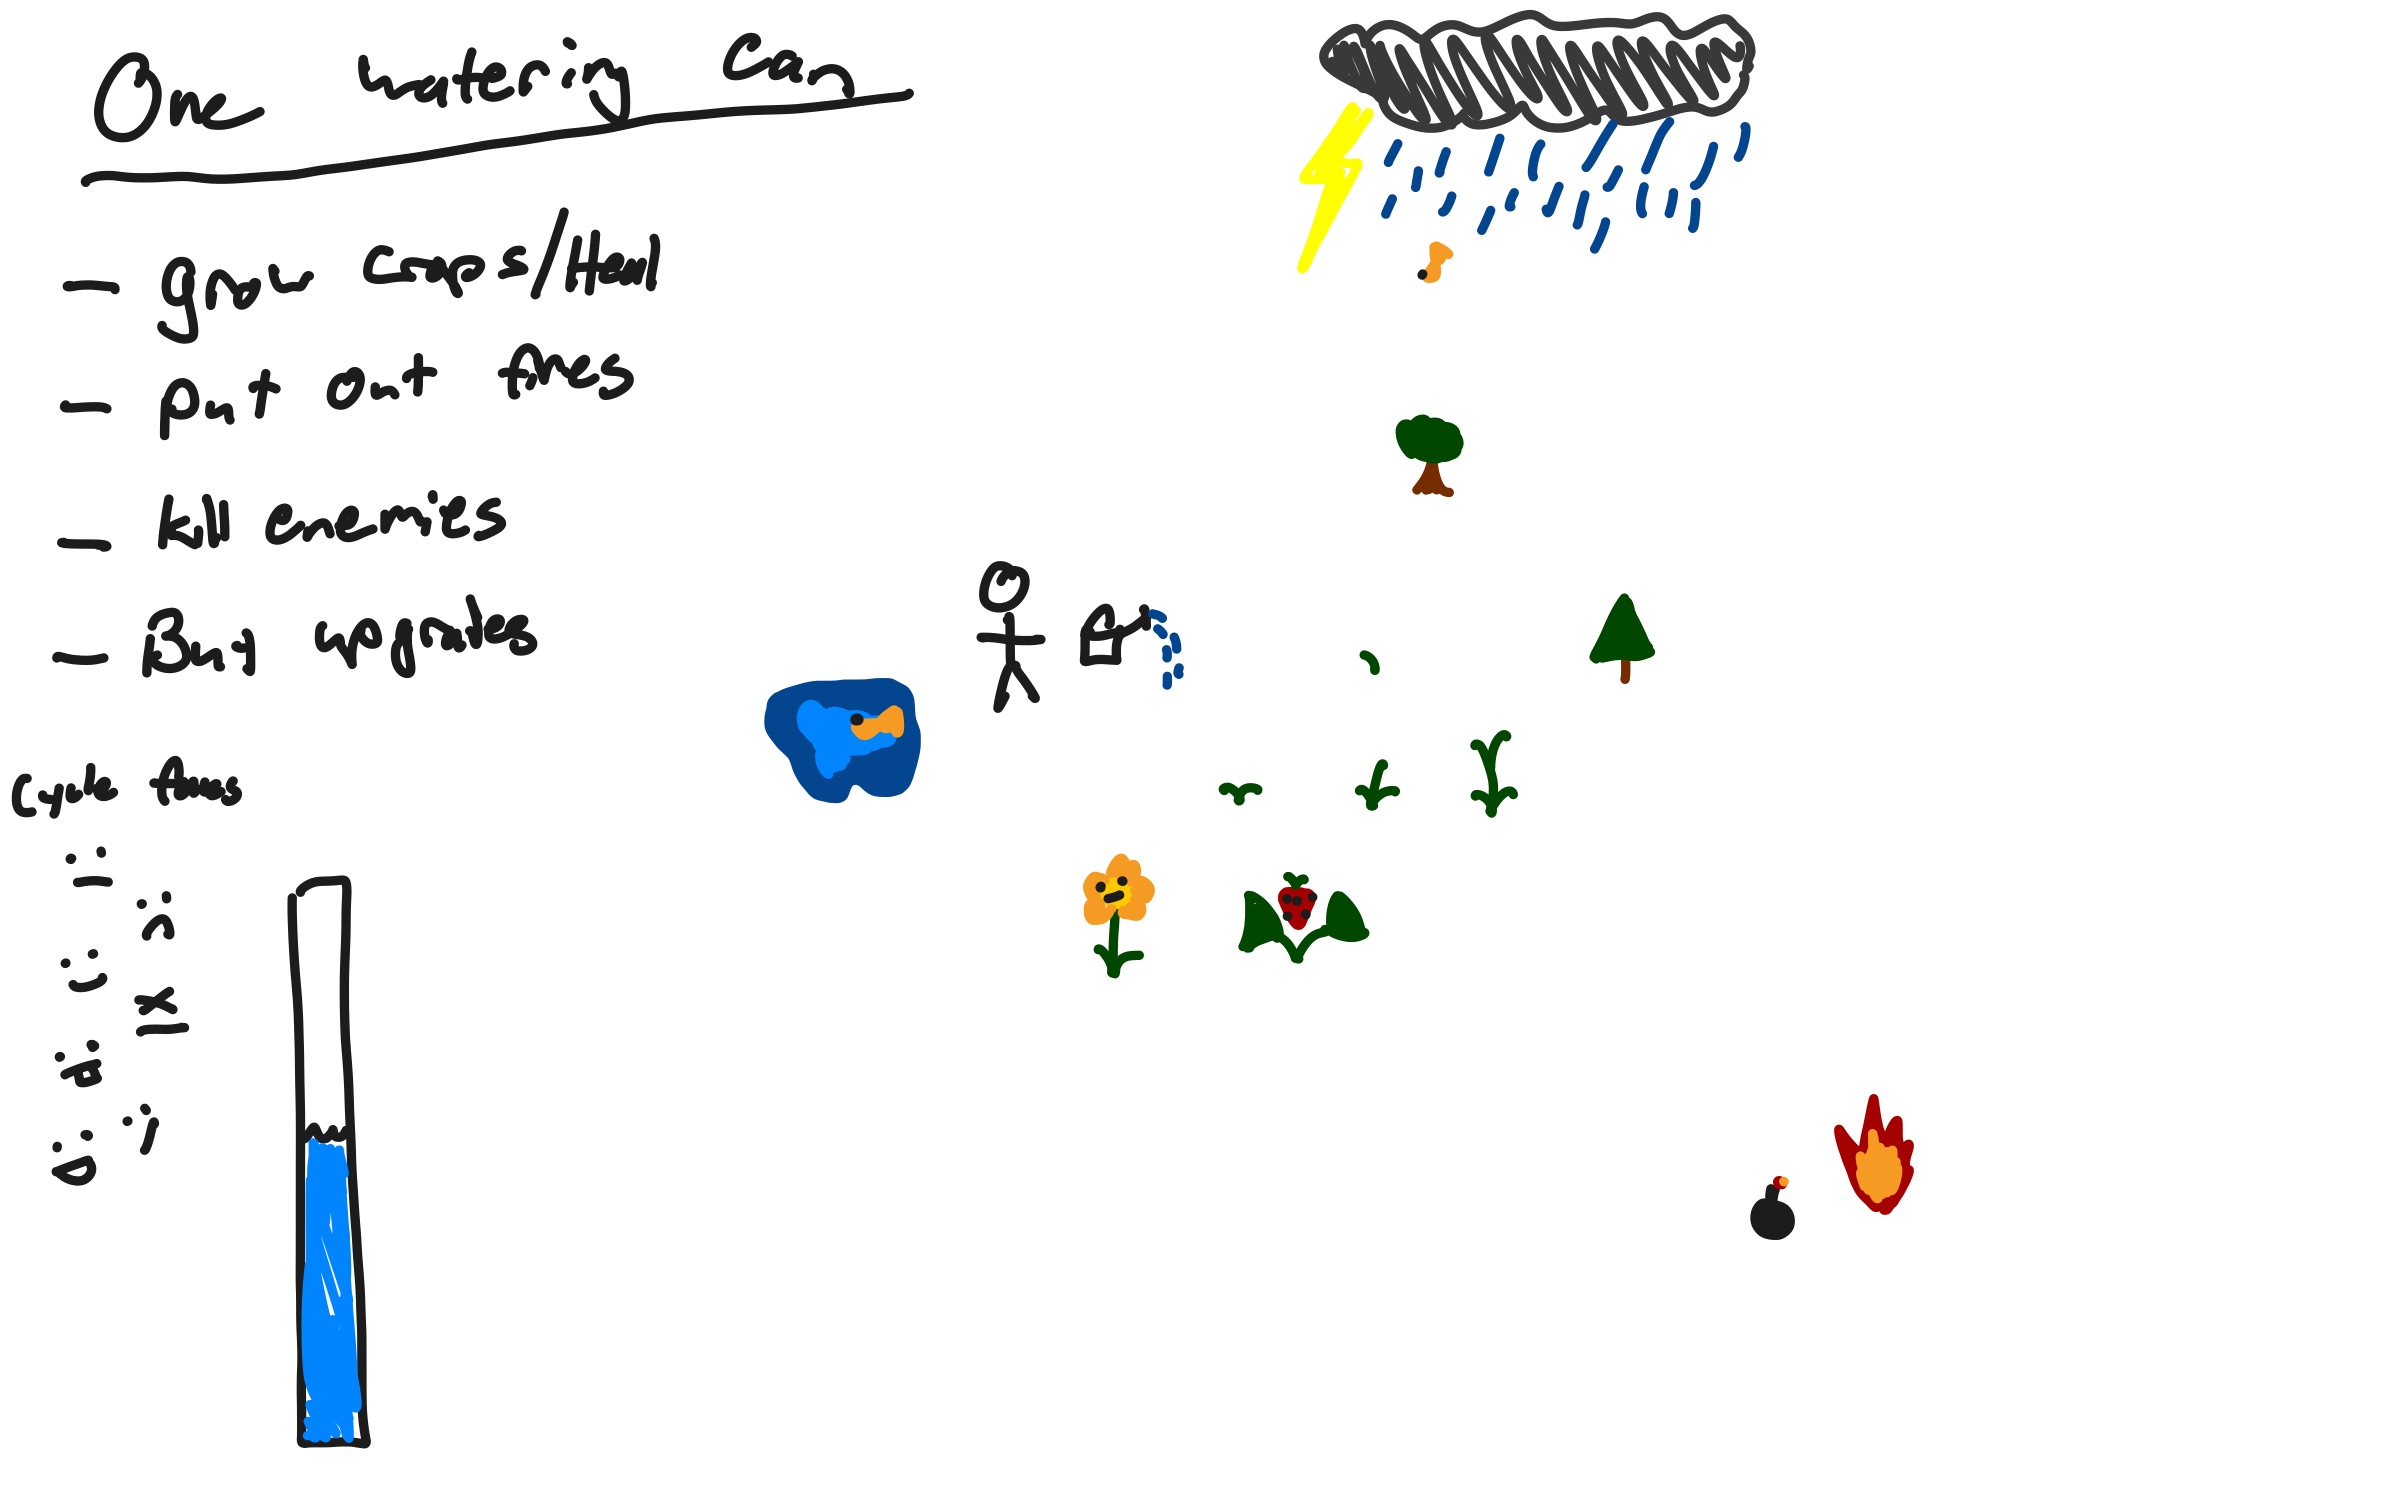 One watering Can
- grow crops/Heal
- put out fires
- kill enemies
- Buy upgrades
Cycle thus